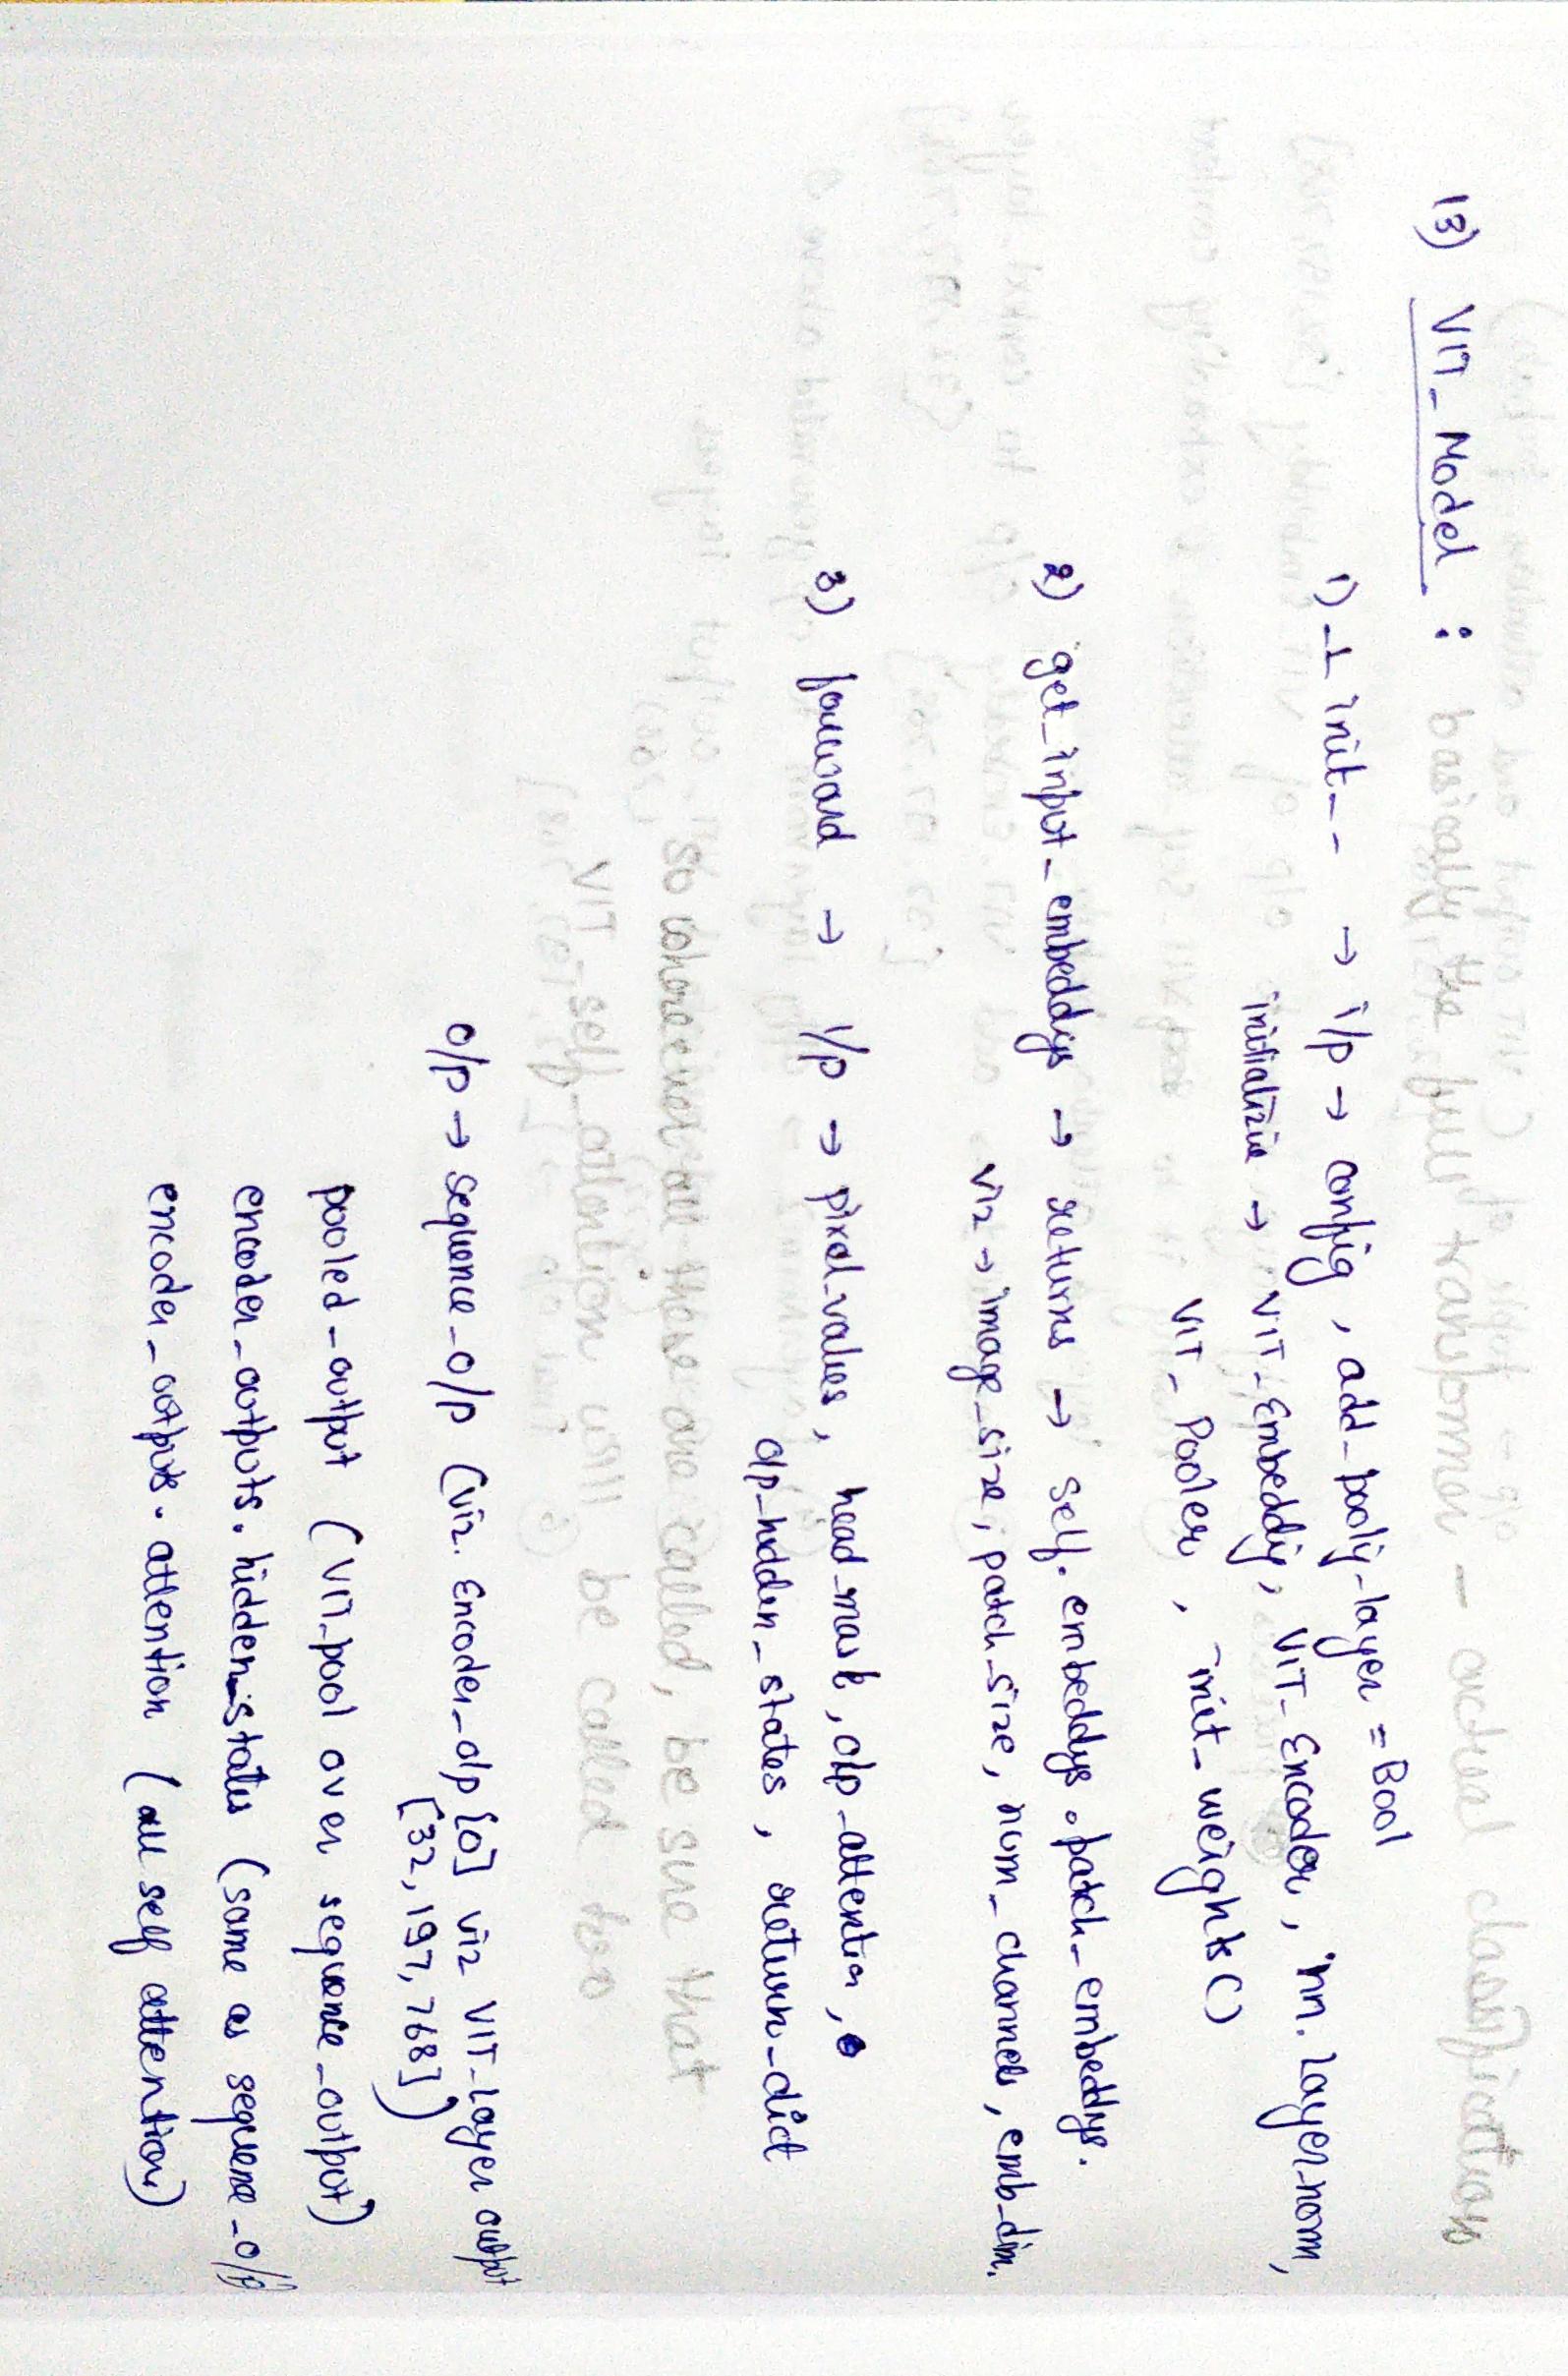 13) VIT_Model : basically the full transformer - actual classification
1) __init__ → i/p → config, add_pooling_layer = Bool
initialize → VIT-Embeddig, VIT-Encoder, nn.Layer-norm,
VIT-Pooler, init_weights()
2) get_input_embeddigs → returns → self.embeddigs.patch_embeddigs.
viz → image_size, patch_size, num_channels, emb_dim.
3) forward → i/p → pixel_values, head_mask, o/p_attention,
o/p_hidden_states, return_dict
so whenever all these are called, be sure that
VIT self-attention will be called too
o/p → sequence_o/p (viz. Encoder_o/p [0] viz VIT-Layer output
[32, 197, 768])
pooled_output (VIT_pool over sequence_output)
encoder_outputs.hidden_states (same as sequence_o/p)
encoder_outputs.attention (all self attention)